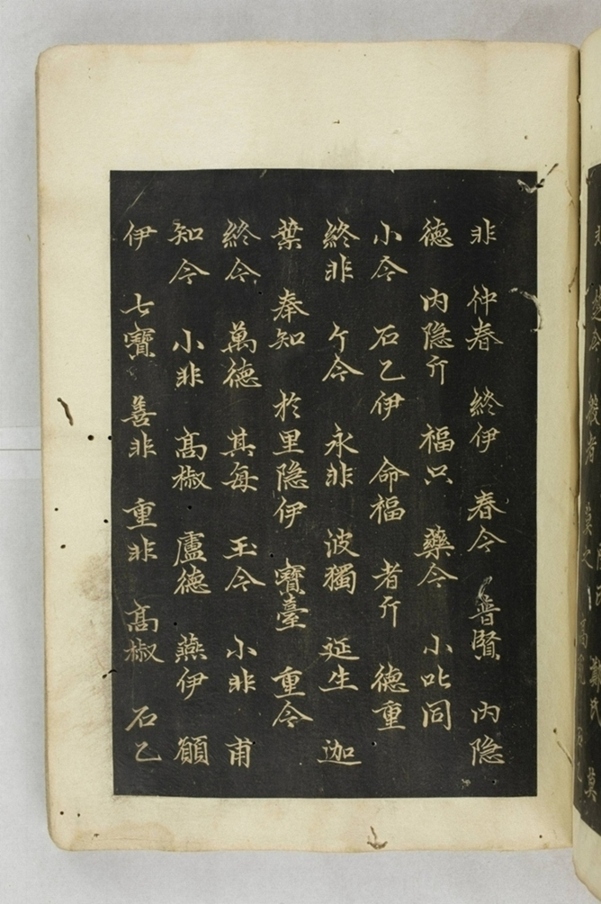 非 仲春 終伊 春今 普賢 內隐
德 內隐斤 福只 藥今 小叱同
小今 石乙伊 命福 者斤 德重
終非 亇今 永非 波獨 延生 迦
葉 奉知 於里隐伊 寶臺 重今
終今 萬德 其每 玉今 小非 甫
知今 小非 髙椒 盧德 燕伊 願
伊 七寶 善非 重非 髙椒 石乙